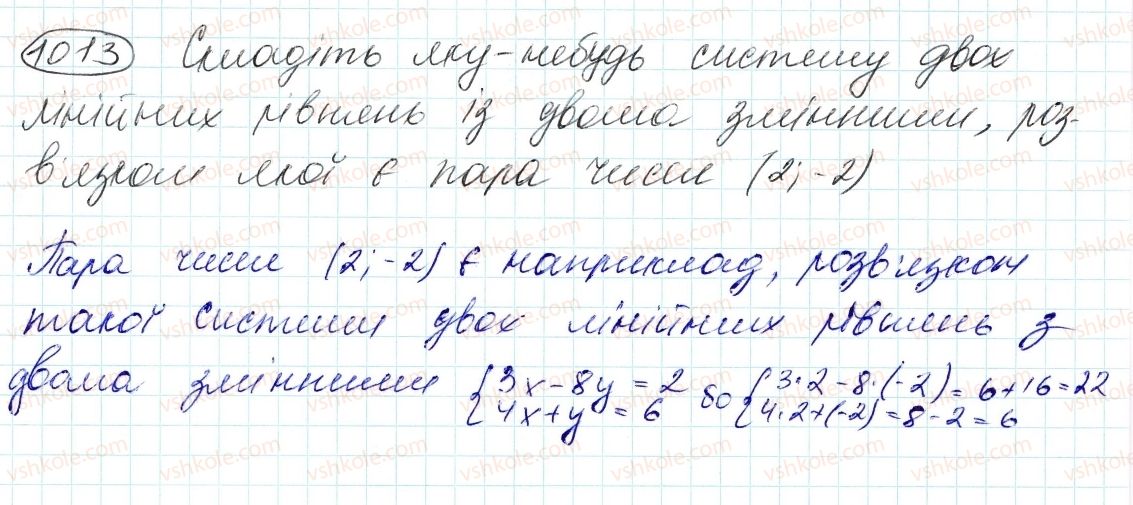 1013 Складіть яку-небудь систему двох
лінійних рівнянь із двома змінними, роз-
в'язком якої є пара чисел (2; -2)
Пара чисел (2; -2) є наприклад, розв'язком
такої системи двох лінійних рівнянь з
двома змінними { 3x - 8y = 2 бо { 3·2 - 8·(-2) = 6 + 16 = 22
4x + y = 6 4·2 + (-2) = 8 - 2 = 6